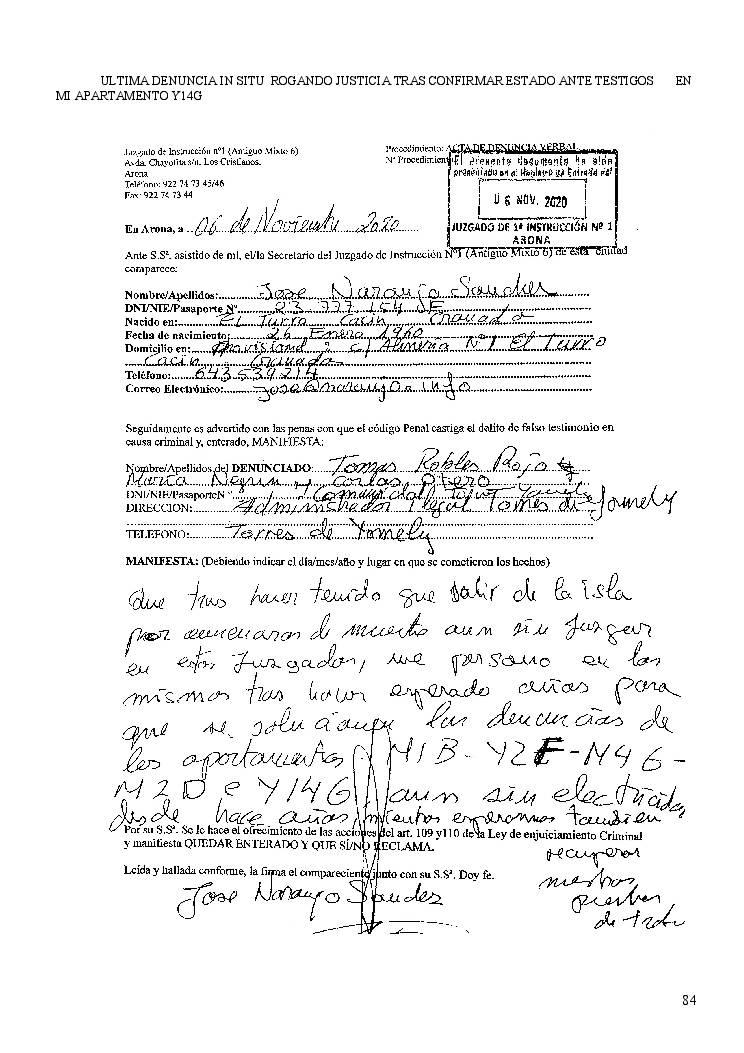 ULTIMA DENUNCIA IN SITU ROGANDO JUSTICIA TRAS CONFIRMAR ESTADO ANTE TESTIGOS EN
MI APARTAMENTO Y14G
Juzgado de Instrucción nº1 (Antiguo Mixto 6)
Avda. Chayofita s/n. Los Cristianos.
Arona
Teléfono: 922 74 73 45/46
Fax: 922 74 73 44
Procedimiento: ACTA DE DENUNCIA VERBAL
Nº Procedimiento
El presente documento ha sido
presentado en el Registro de Entrada del
06 NOV. 2020
JUZGADO DE 1ª INSTRUCCIÓN Nº 1
ARONA
En Arona, a 06 de Noviembre 2020
Ante S.Sª. asistido de mi, el/la Secretario del Juzgado de Instrucción Nº1 (Antiguo Mixto 6) de esta ciudad
comparece:
Nombre/Apellidos: Jose Naranjo Sanchez
DNI/NIE/Pasaporte Nº 23 777 154
Nacido en: El Turro Cacin Granada
Fecha de nacimiento: 26 Enero 1960
Domicilio en: Provisional c/ Almeria Nº1 El Turro
Cacin Granada
Teléfono: 643539214
Correo Electrónico: jose@naranjo.info
Seguidamente es advertido con las penas con que el código Penal castiga el delito de falso testimonio en
causa criminal y, enterado, MANIFIESTA:
Nombre/Apellidos del DENUNCIADO: Tomas Robles Rojo y
Maria Negrin y Carlos Otero
DNI/NIE/PasaporteNº
DIRECCION: Administrador Ilegal Torres de Yomely
TELEFONO: Torres de Yomely
MANIFESTA: (Debiendo indicar el día/mes/año y lugar en que se cometieron los hechos)
Que tras haber tenido que salir de la isla
por amenazas de muerte aun sin Juzgar
en estos Juzgados, me persono en los
mismos tras haber esperado años para
que se solucionen las denuncias de
los apartamentos M1B-Y2F-N46-
M2D e Y14G aun sin electricidad
desde hace años mientras esperamos también
recuperar
nuestros
puestos
de trabajo
Por su S.Sª. Se le hace el ofrecimiento de las acciones del art. 109 y110 de la Ley de enjuiciamiento Criminal
y manifiesta QUEDAR ENTERADO Y QUE SÍ/NO RECLAMA.
Leída y hallada conforme, la firma el compareciente junto con su S.Sª. Doy fe.
Jose Naranjo Sanchez
84